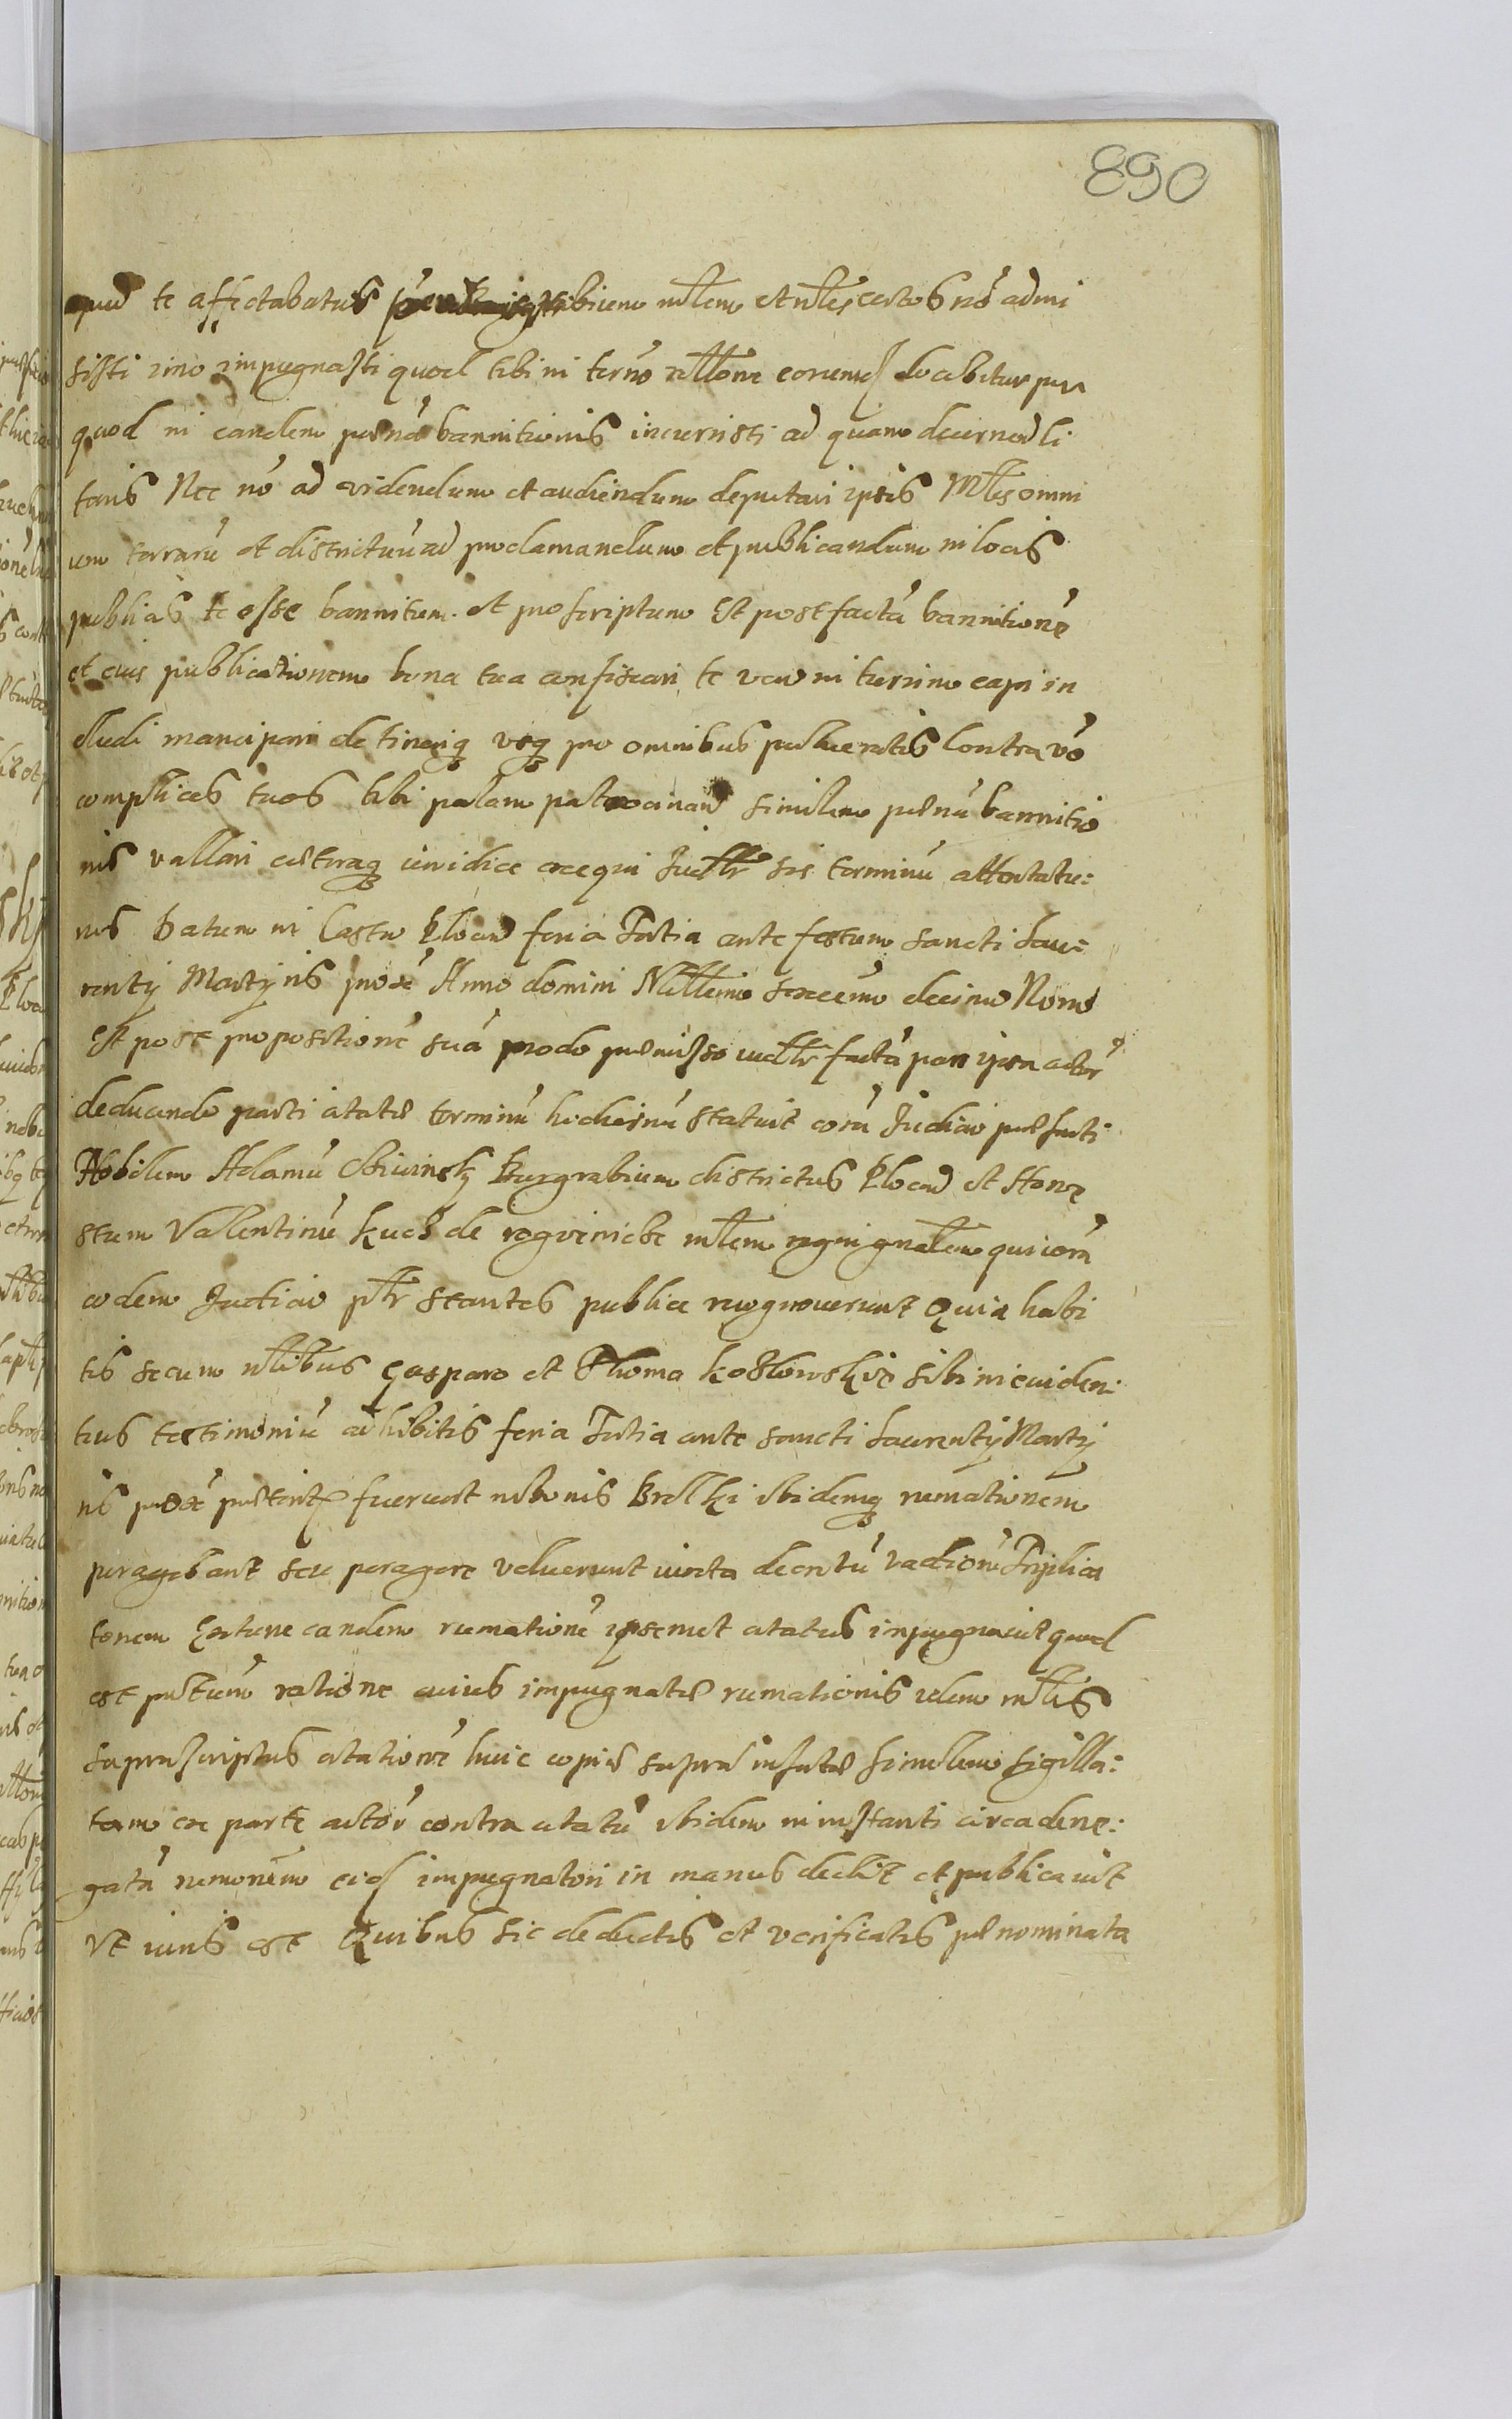 890
apud te affectabatus bium mlem et nles certos nō admi
sisti imo impugnasti quod tibi in termo rllone eorund docebitur per
quod in eandem pœnā bannitionis incurristi ad quam decernend ci
taris Nec nō ad videndum et audiendum deputari ipsis Mles omni
um terrarū et districtuū ad proclamandum et publicandum in locis
publicis te esse bannitum et proscriptum Et post factā bannitionē
et eius publicationem bona tua confiscari te vero in turrim capi in
cludi mancipari detineriq usq pro omnibus Contra vō
complices tuos tibi palam patrocinand similem pœnā bannitio
nis vallari cæteraq iuridice exequi Judlr sis terminū attentatu=
rus Datum in Castro Plocen feria Tertia ante festum sancti Lau=
renty Martyris proxē Anno domini Millemo sexcemo decimo Nono
Et post propositionē suā modo præmisso iudlr factā pars ipsa actor
deducendo parti citatæ terminū hodiernū statuit corā Judicio præsenti
Nobilem Adamū Burgrabium districtus Plocen et Hone
stum Valentinū Kucz de mlem regni gnalem qui corā
eodem Judicio plr stantes publice recognoverunt Quia habi
tis secum nlibus Gasparo et Thoma Kozlowskie sibi in eviden
tius testimoniū adhibitis feria Tertia ante sancti Laurenty Marty
ris proxē præterit fuerunt in bonis Brelki ibidemq rumationem
peragebant seu peragere voluerunt iuxta decretū vadiorū Triplica
torum Ex tunc eandem rumationē ipsemet citatus impugnavit quod
est prætum ratione cuius impugnatæ rumationis idem mlis
suprascriptus citationē huic copiæ supra insertæ similem sigilla=
tam ex parte actorū contra citatū ibidem in instanti circa dene=
gatā rumonem eid impugnatori in manus dedit et publicavit
Vt iuris est Quibus sic deductis et verificatis prænominata